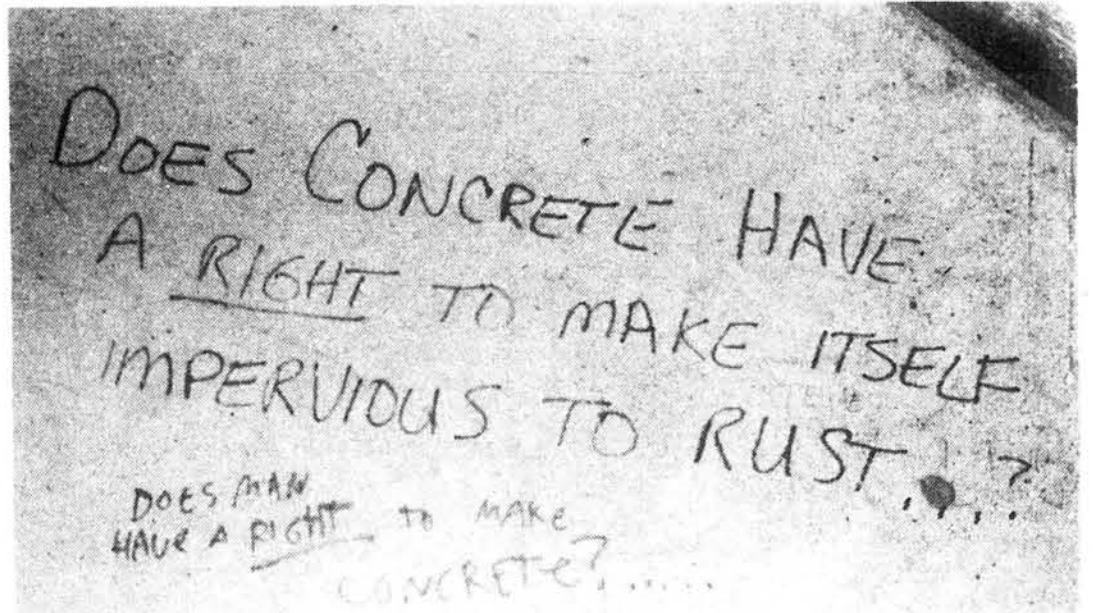 DOES CONCRETE HAVE
A RIGHT TO MAKE ITSELF
IMPERVIOUS TO RUST....?
DOES MAN
HAVE A RIGHT TO MAKE
CONCRETE?......